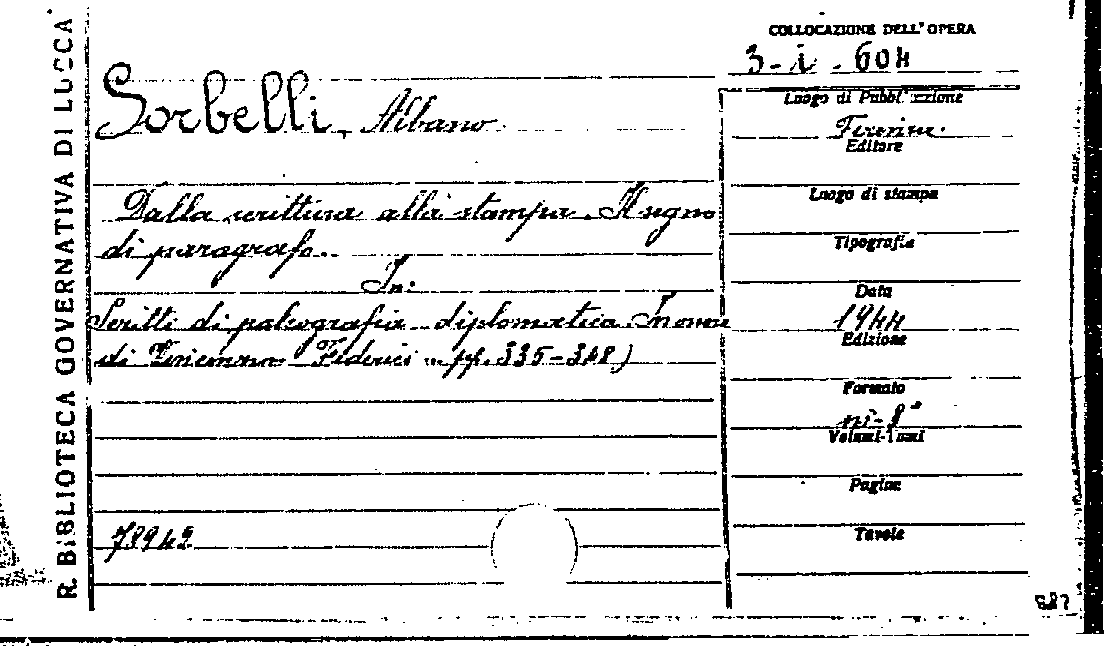 R. BIBLIOTECA GOVERNATIVA DI LUCCA
COLLOCAZIONE DELL'OPERA
3-i-604
Sorbelli, Albano
Dalla scrittura alla stampa. Il segno
di paragrafo.
In:
Scritti di paleografia diplomatica. In onore
di Vincenzo Federici pp. 335-348)
78942
Luogo di Pubblicazione
Firenze.
Editore
Luogo di stampa
Tipografia
Data
1944
Edizione
Formato
in-8°
Volumi-Tomi
Pagine
Tavole